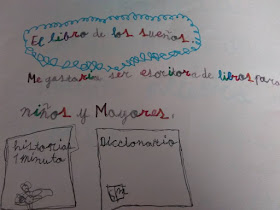 El libro de los sueños.
Me gustaría ser escritora de libros para
niños y Mayores.
historias
1 minuto
Diccionario